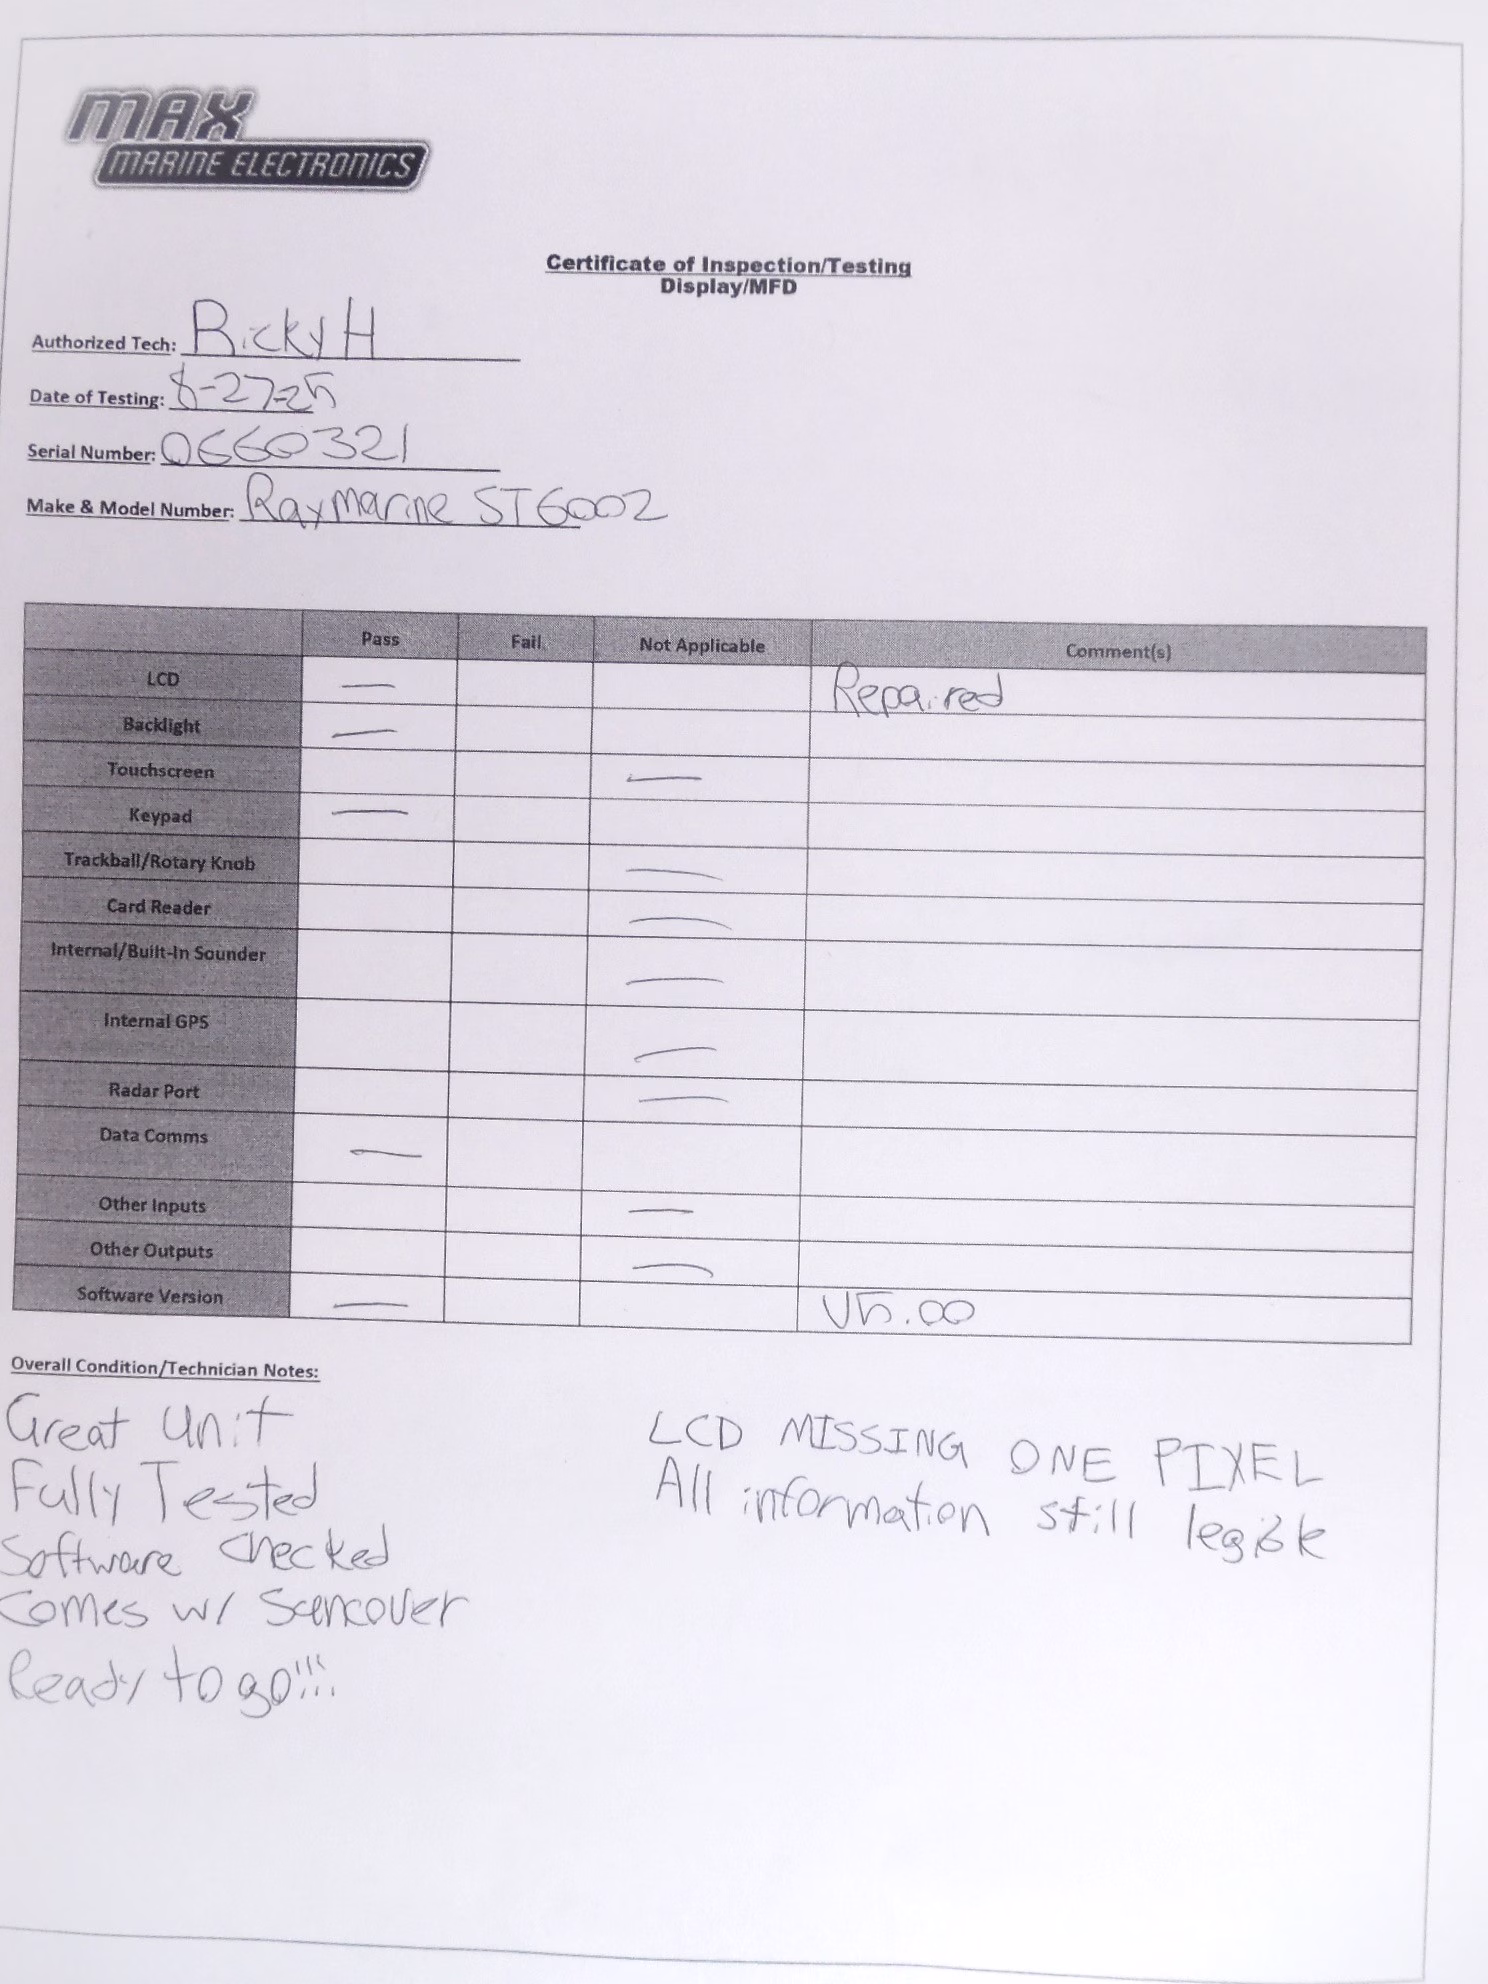 MAX
MARINE ELECTRONICS
Certificate of Inspection/Testing
Display/MFD
Authorized Tech: Ricky H
Date of Testing: 8-27-25
Serial Number: 0660321
Make & Model Number: Raymarine ST6002
Pass Fail Not Applicable Comment(s)
LCD — Repaired
Backlight —
Touchscreen —
Keypad —
Trackball/Rotary Knob —
Card Reader —
Internal/Built-In Sounder —
Internal GPS —
Radar Port —
Data Comms —
Other Inputs —
Other Outputs —
Software Version — V5.00
Overall Condition/Technician Notes:
Great Unit
Fully Tested
Software Checked
Comes w/ Suncover
Ready to go!!!
LCD MISSING ONE PIXEL
All information still legible